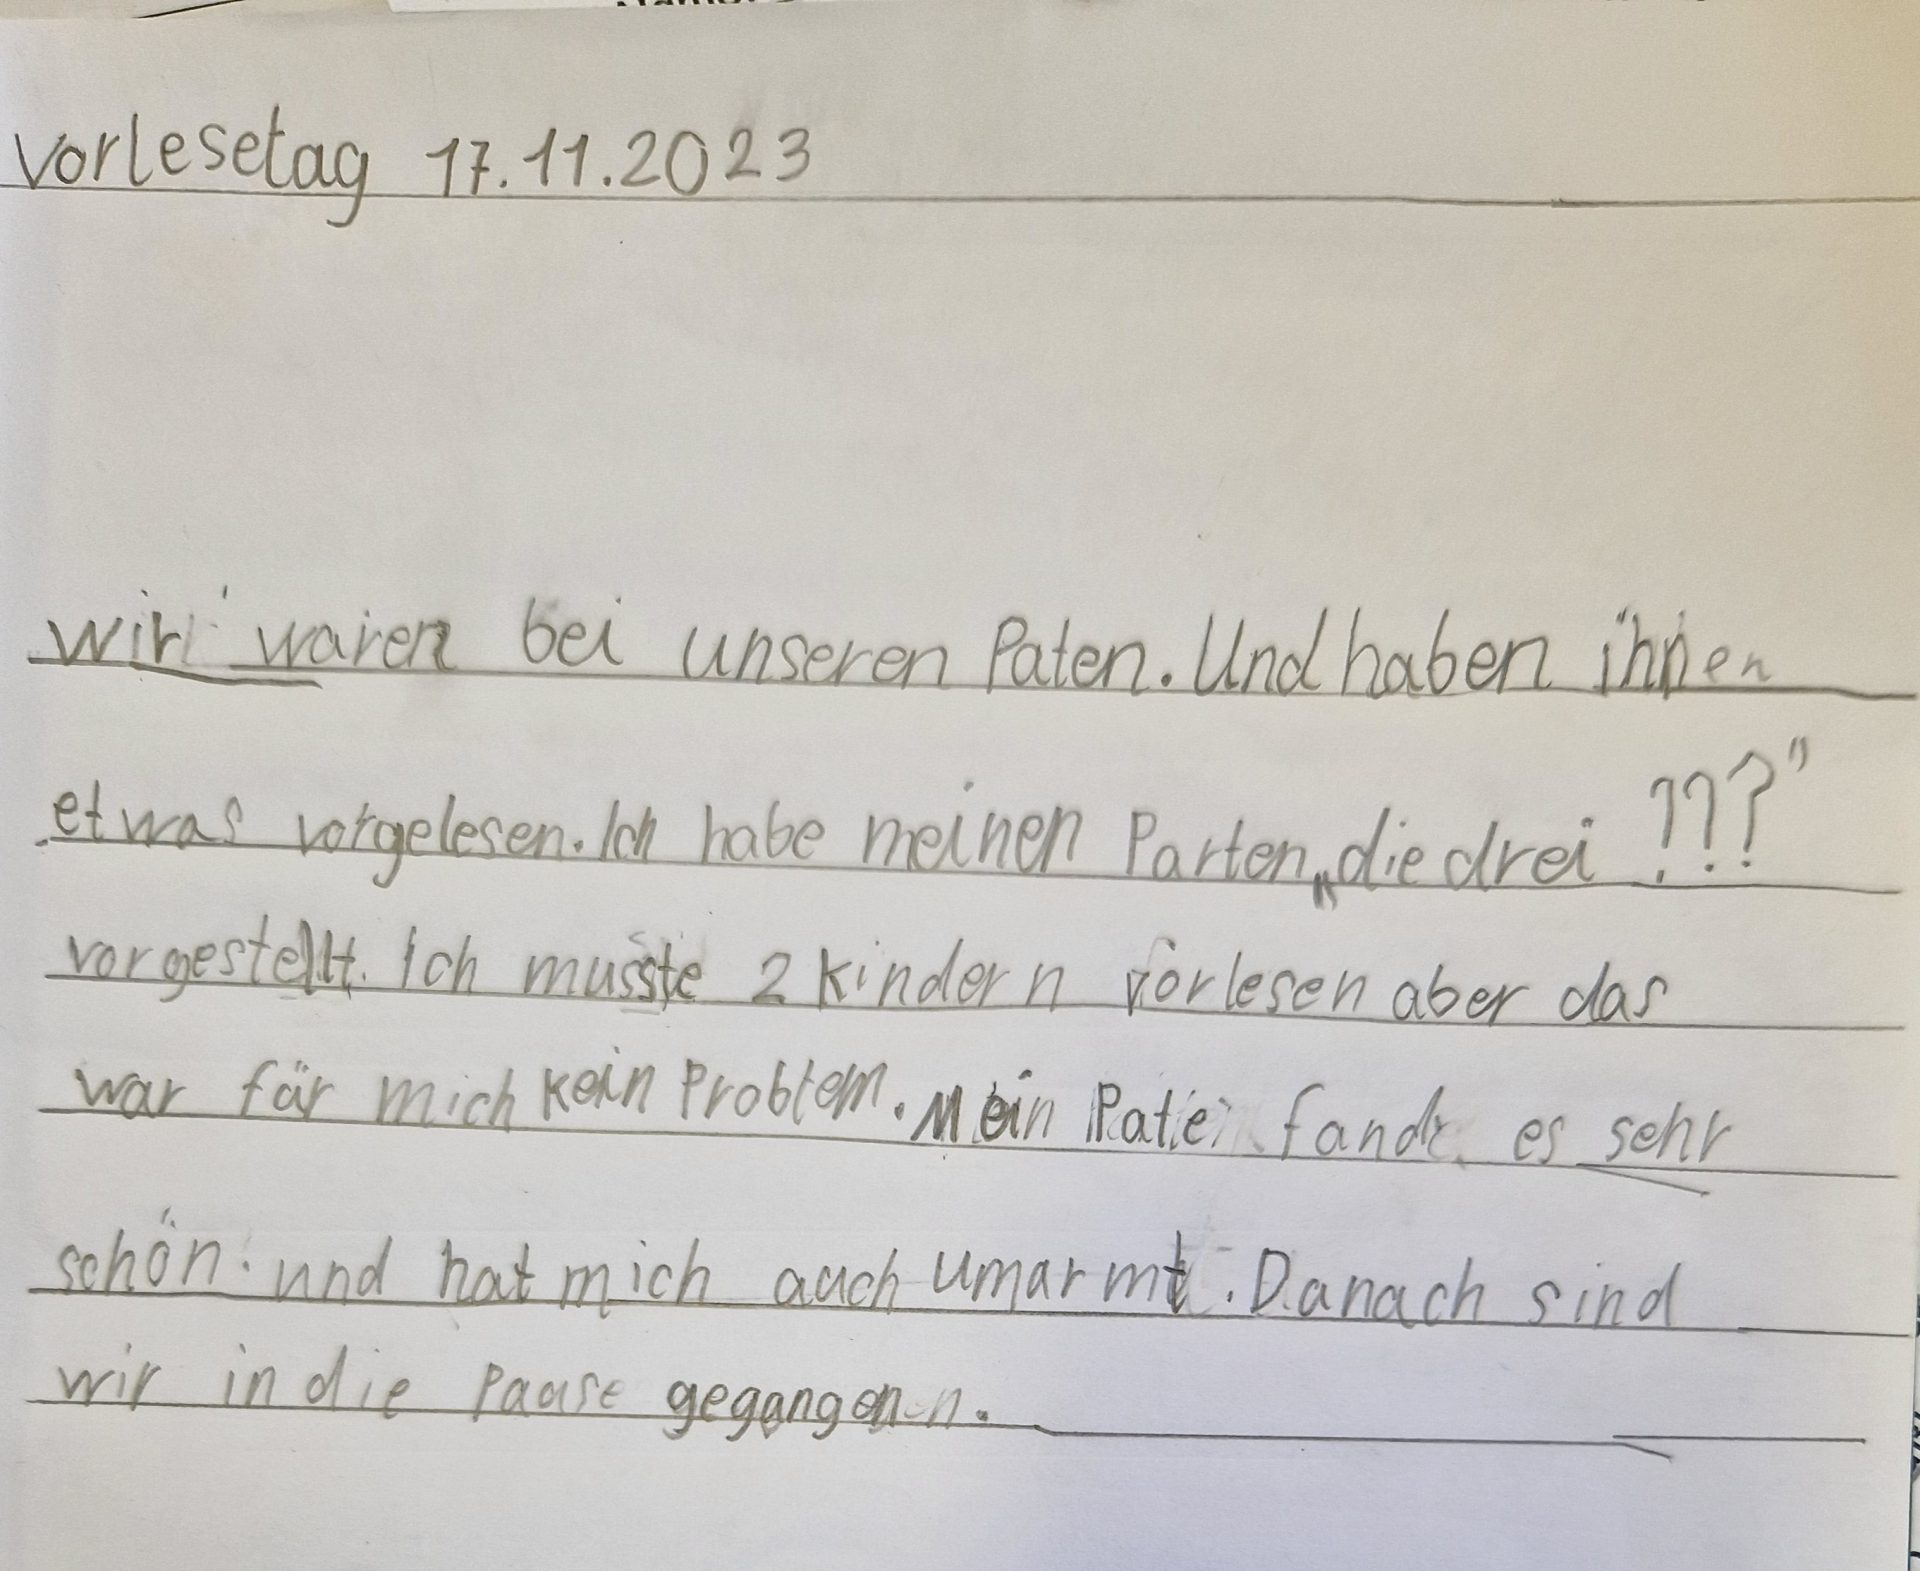 Vorlesetag 17.11.2023
Wir waren bei unseren Paten. Und haben ihnen
etwas vorgelesen. Ich habe meinen Parten „die drei ???"
vorgestellt. Ich musste 2 Kindern vorlesen aber das
war für mich kein Problem. Mein Pate fand es sehr
schön. und hat mich auch umarmt. Danach sind
wir in die Pause gegangen.